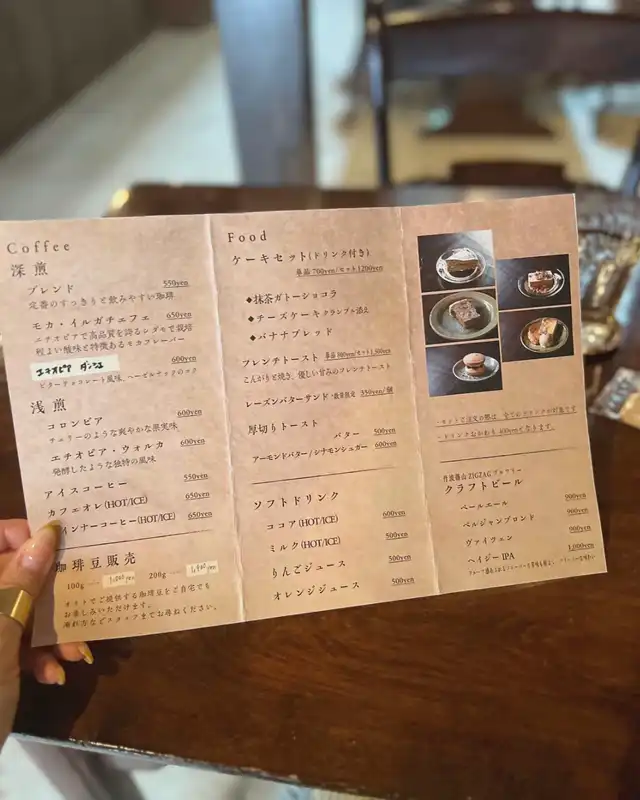 Coffee
深煎
ブレンド 550yen
定番のすっきりと飲みやすい珈琲
モカ・イルガチェフェ 650yen
エチオピアで高品質を誇るシダモで栽培
程よい酸味と特徴あるモカフレーバー
エチオピア 600yen
ビターチョコレート風味、ヘーゼルナッツのコク
浅煎
コロンビア 600yen
チェリーのような爽やかな果実味
エチオピア・ウォルカ 600yen
発酵したような独特の風味
アイスコーヒー 550yen
カフェオレ(HOT/ICE) 650yen
インナーコーヒー(HOT/ICE) 650yen
珈琲豆販売
100g 200g
オリトでご提供する珈琲豆をご自宅でも
お楽しみいただけます。
などスタッフまでお尋ねください。
Food
ケーキセット(ドリンク付き)
単品 700yen/セット1200yen
◆抹茶ガトーショコラ
◆チーズケーキ クランブル添え
◆バナナブレッド
フレンチトースト
こんがりと焼き、優しい甘みのフレンチトースト
レーズンバターサンド ・数量限定 350yen/個
厚切りトースト
バター 500yen
アーモンドバター/シナモンシュガー 600yen
ソフトドリンク
ココア(HOT/ICE) 600yen
ミルク(HOT/ICE) 500yen
りんごジュース 500yen
オレンジジュース 500yen
・ドリンクおかわり 400yenとなります。
丹波篠山 ZIGZAG ブルワリー
クラフトビール
ペールエール 900yen
ベルジャンブロンド 900yen
ヴァイツェン 900yen
ヘイジーIPA 1,000yen